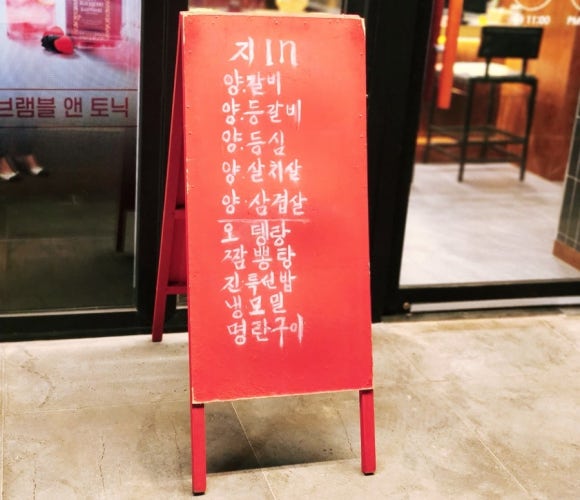 브램블 앤 토닉
11:00
지in
양.갈비
양.등갈비
양.등심
양.살치살
양.삼겹살
오뎅탕
짬뽕탕
진특선밥
냉모밀
명란구이